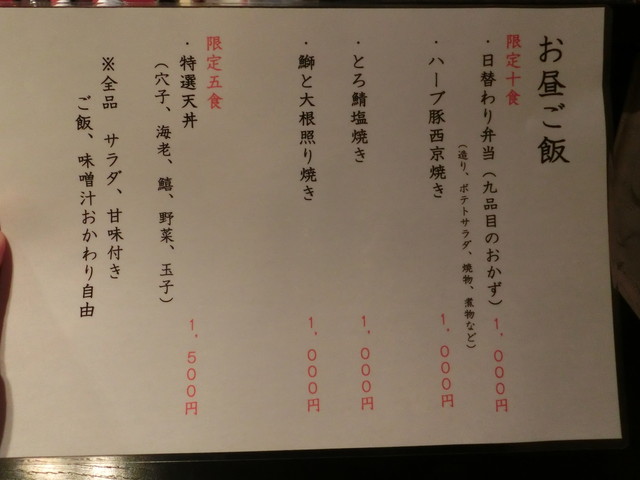 お昼ご飯
限定十食
・日替わり弁当（九品目のおかず）1,000円
（造り、ポテトサラダ、焼物、煮物など）
・ハーブ豚西京焼き 1,000円
・とろ鯖塩焼き 1,000円
・鰤と大根照り焼き 1,000円
限定五食
・特選天丼 1,500円
（穴子、海老、鱚、野菜、玉子）
※全品 サラダ、甘味付き
ご飯、味噌汁おかわり自由